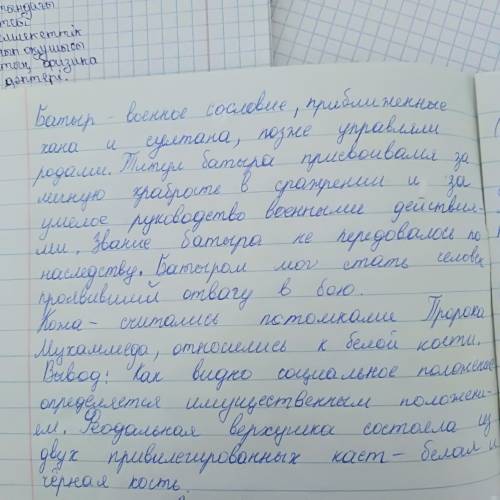 тындағы
тегі
емлекеттік
тың оқушысы
тың физика
дәптері.
Батыр - военное сословие, приближенные
хана и султана, позже управляли
родами. Титул батыра присвоивался за
личную храбрость в сражении и за
умелое руководство военными действия-
ми. Звание батыра не передовалось по
наследству. Батыром мог стать человек
проявивший отвагу в бою.
Кожа - считались потомками Пророка
Мухаммеда, относились к белой кости.
Вывод: Как видно социальное положение
определяется имущественным положени-
ем. Феодальная верхушка состояла из
двух привилегированных каст - белая и
чёрная кость.